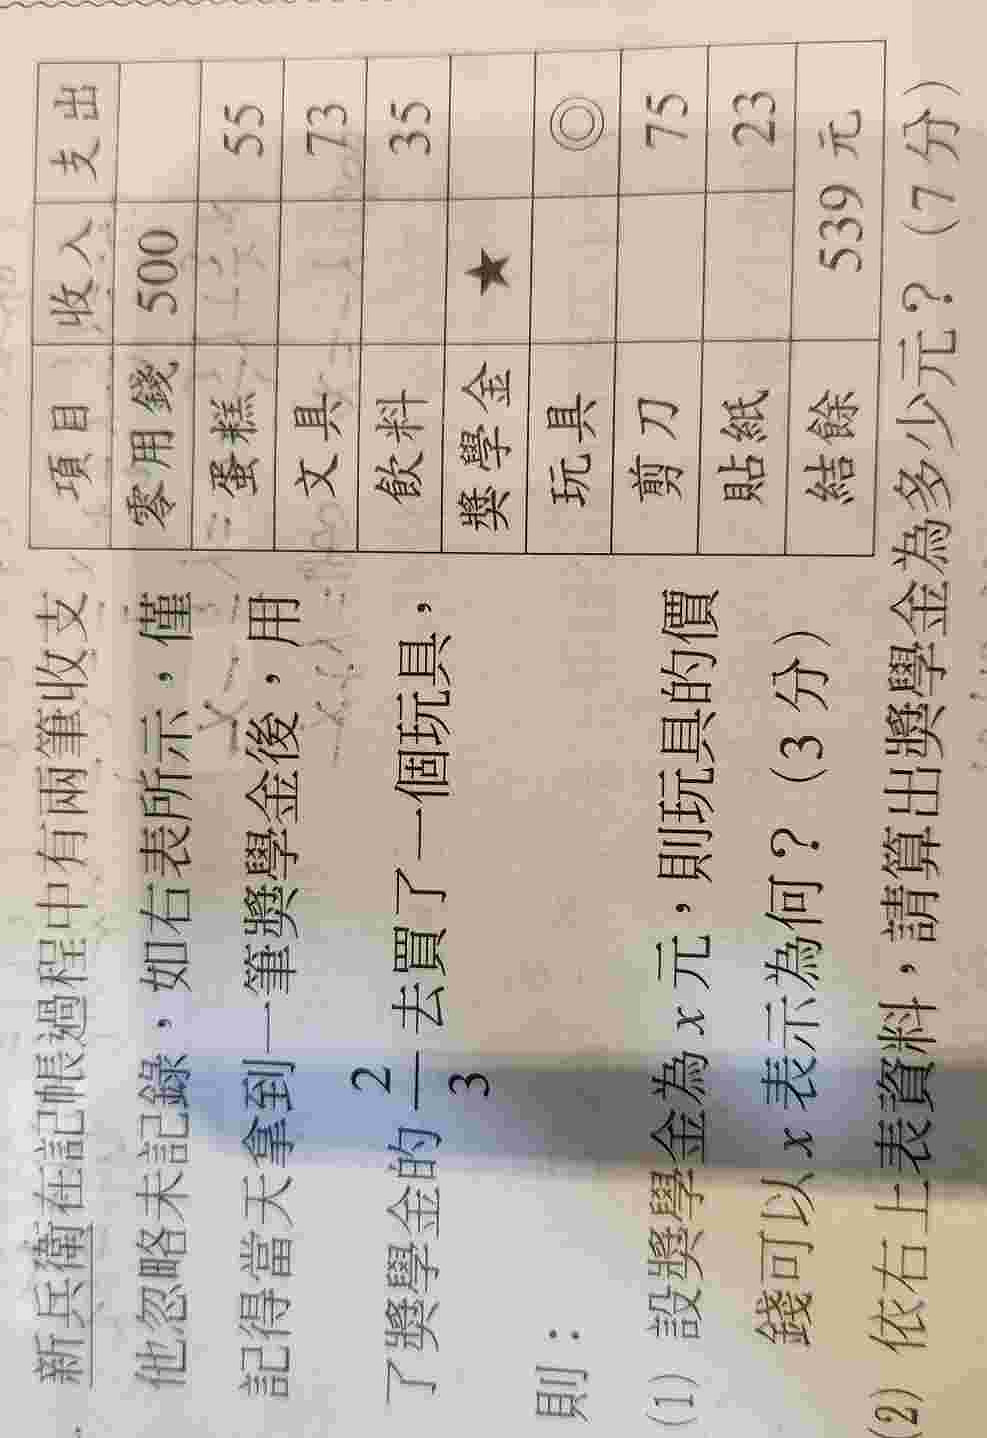 新兵衛在記帳過程中有兩筆收支,
他忽略未記錄,如右表所示,僅
記得當天拿到一筆獎學金後,用
了獎學金的2/3去買了一個玩具,
則:
(1) 設獎學金為 x 元,則玩具的價
錢可以 x 表示為何?(3 分)
(2) 依右上表資料,請算出獎學金為多少元?(7 分)
項目 收入 支出
零用錢 500
蛋糕 55
文具 73
飲料 35
獎學金 ★
玩具 ◎
剪刀 75
貼紙 23
結餘 539 元